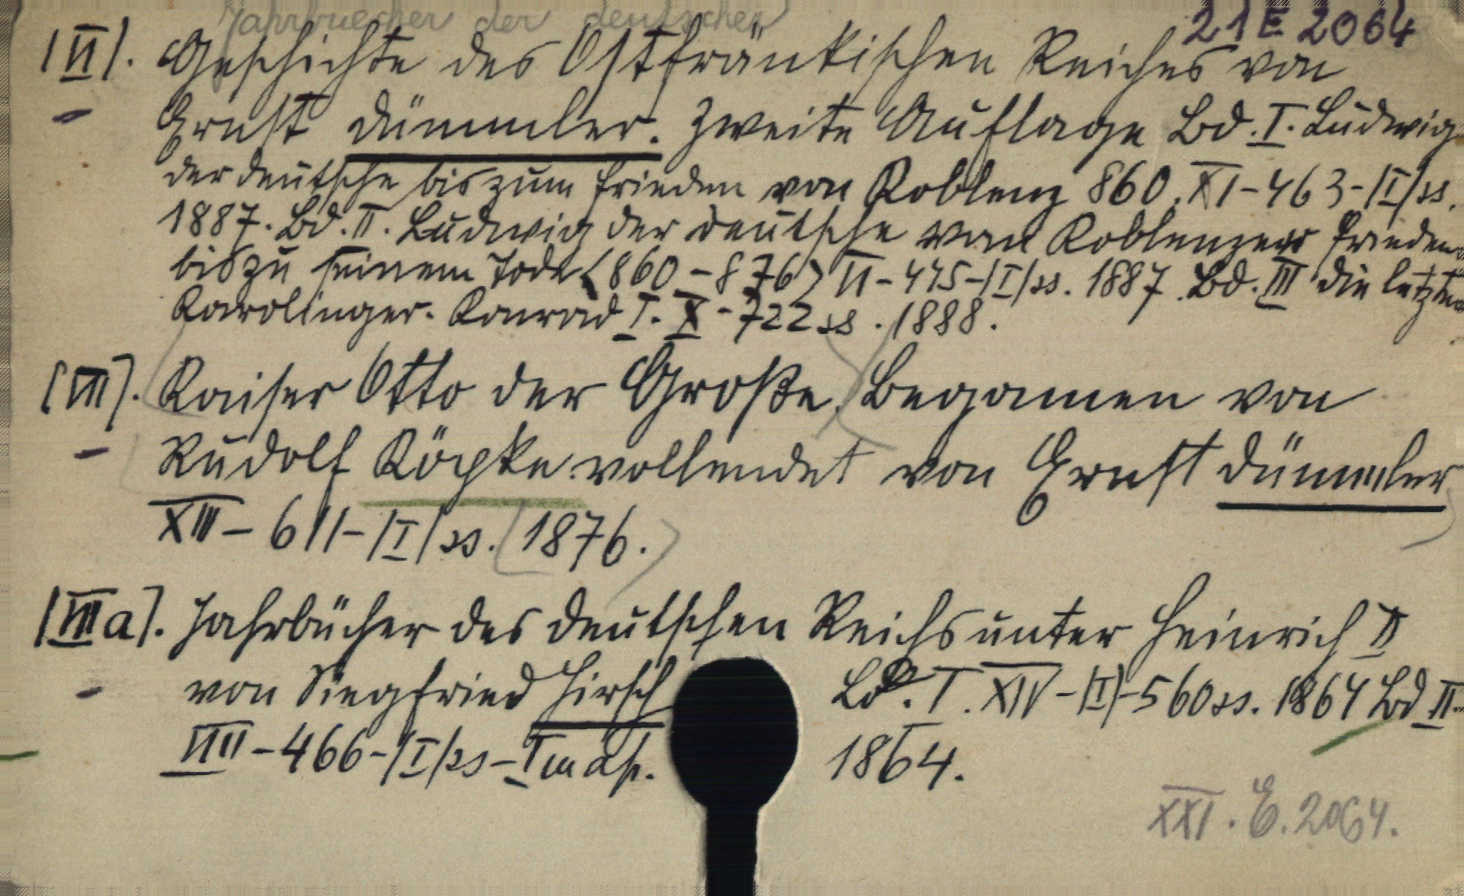 Jahrbuecher der deutschen
21 E 2064
[VI]. Geschichte des Ostfränkischen Reiches von
Ernst Dümmler. Zweite Auflage Bd. I. Ludwig
der Deutsche bis zum Frieden von Koblenz 860. XI-463-[I]ss.
1887. Bd. II. Ludwig der Deutsche vom Koblenzer Frieden
bis zu seinem Tode (860-876) VI-445-[I]ss. 1887. Bd. III die letzten
Karolinger. Konrad I. X-722 ss. 1888.
[VII]. Kaiser Otto der Große. Begonnen von
Rudolf Köpke vollendet von Ernst Dümmler
XII-611-[I]ss. 1876.
[VIIIa]. Jahrbücher des deutschen Reichs unter Heinrich II
von Siegfried Hirsch Bd. I. XIV-[I]-560 ss. 1864 Bd II.
VIII-466-[I]ss-I 1864.
XXI. E. 2064.